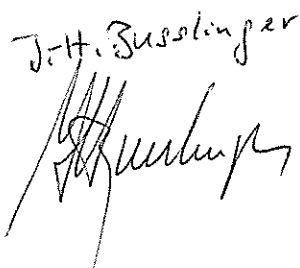 J.-H. Busslinger